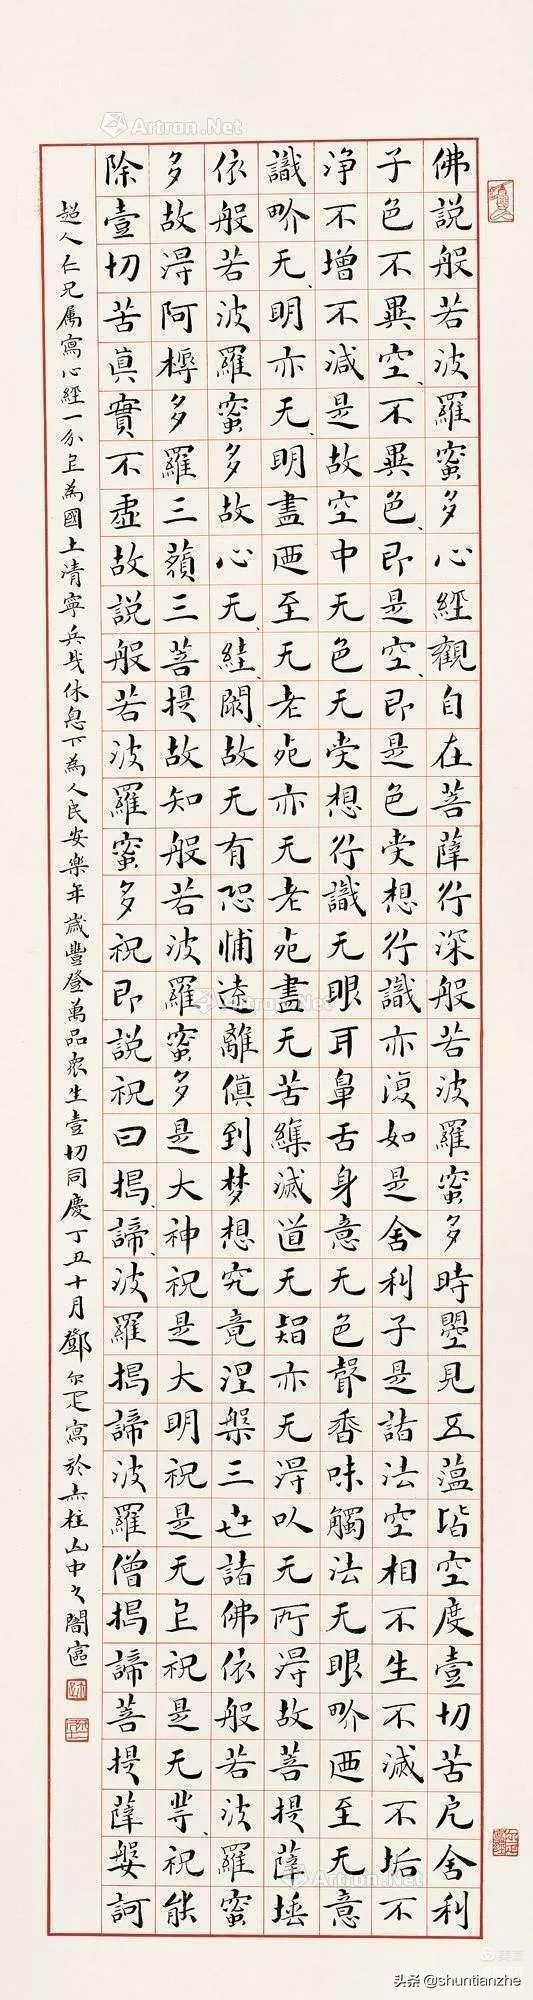 佛說般若波羅蜜多心經觀自在菩薩行深般若波羅蜜多時曌見五蘊皆空度壹切苦厄舍利
子色不異空、不異色、即是空、即是色受想行識亦復如是舍利子是諸法空相不生不滅不垢不
淨不增不減是故空中无色无受想行識无眼耳鼻舌身意无色聲香味觸法无眼畍迺至无意
識畍无、明亦无、明盡迺至无老死亦无老死盡无苦集滅道无智亦无得以无所得故菩提薩埵
依般若波羅蜜多故心无、絓、閡、故无有恐怖遠離傎到梦想究竟涅槃三世諸佛依般若波羅蜜
多故得阿耨多羅三藐三菩提故知般若波羅蜜多是大神祝是大明祝是无上祝是无等、祝能
除壹切苦眞實不虛故說般若波羅蜜多祝即說祝曰揭、諦、波羅揭諦波羅僧揭諦菩提薩婆訶
超人仁兄属寫心經一分上為國土清寧兵戈休息下為人民安樂年歲豐登萬品衆生壹切同慶丁丑十月鄧尔疋寫於赤柱山中之闇
Artron.Net
Artron.Net
Artron.Net
头条 @shuntianzhe